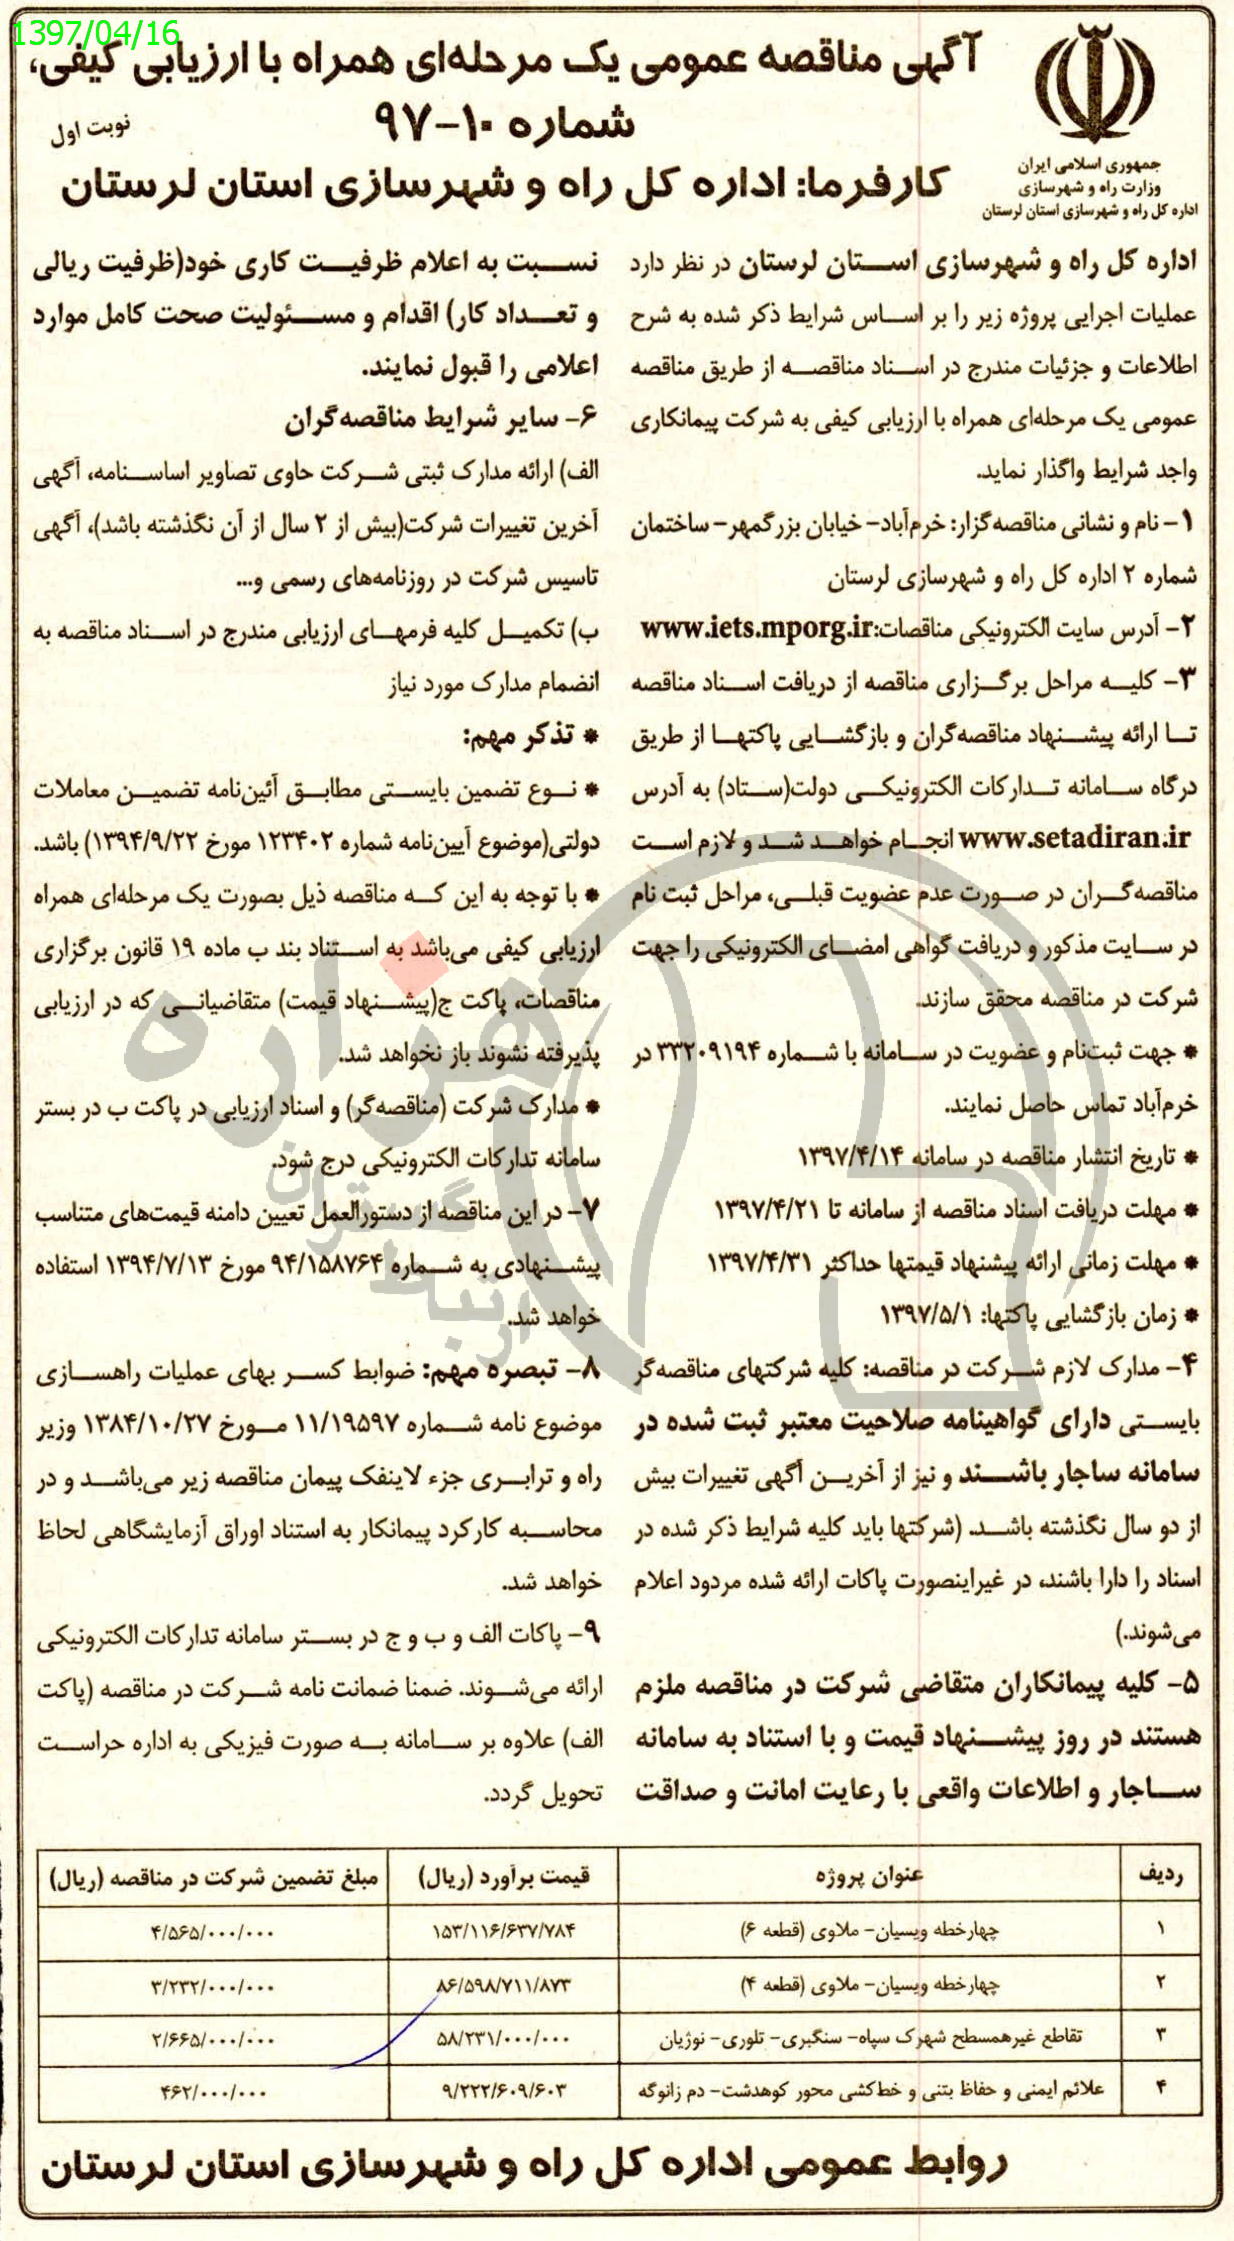 1397/04/16
جمهوری اسلامی ایران
وزارت راه و شهرسازی
اداره کل راه و شهرسازی استان لرستان
آگهی مناقصه عمومی یک مرحله‌ای همراه با ارزیابی کیفی،
شماره ۱۰-۹۷
نوبت اول
کارفرما: اداره کل راه و شهرسازی استان لرستان
اداره کل راه و شهرسازی استان لرستان در نظر دارد
عملیات اجرایی پروژه زیر را بر اساس شرایط ذکر شده به شرح
اطلاعات و جزئیات مندرج در اسناد مناقصه از طریق مناقصه
عمومی یک مرحله‌ای همراه با ارزیابی کیفی به شرکت پیمانکاری
واجد شرایط واگذار نماید.
۱- نام و نشانی مناقصه‌گزار: خرم‌آباد- خیابان بزرگمهر- ساختمان
شماره ۲ اداره کل راه و شهرسازی لرستان
۲- آدرس سایت الکترونیکی مناقصات:www.iets.mporg.ir
۳- کلیه مراحل برگزاری مناقصه از دریافت اسناد مناقصه
تا ارائه پیشنهاد مناقصه‌گران و بازگشایی پاکتها از طریق
درگاه سامانه تدارکات الکترونیکی دولت(ستاد) به آدرس
www.setadiran.ir انجام خواهد شد و لازم است
مناقصه‌گران در صورت عدم عضویت قبلی، مراحل ثبت نام
در سایت مذکور و دریافت گواهی امضای الکترونیکی را جهت
شرکت در مناقصه محقق سازند.
* جهت ثبت‌نام و عضویت در سامانه با شماره ۳۳۲۰۹۱۹۴ در
خرم‌آباد تماس حاصل نمایند.
* تاریخ انتشار مناقصه در سامانه ۱۳۹۷/۴/۱۴
* مهلت دریافت اسناد مناقصه از سامانه تا ۱۳۹۷/۴/۲۱
* مهلت زمانی ارائه پیشنهاد قیمتها حداکثر ۱۳۹۷/۴/۳۱
* زمان بازگشایی پاکتها: ۱۳۹۷/۵/۱
۴- مدارک لازم شرکت در مناقصه: کلیه شرکتهای مناقصه‌گر
بایستی دارای گواهینامه صلاحیت معتبر ثبت شده در
سامانه ساجار باشند و نیز از آخرین آگهی تغییرات بیش
از دو سال نگذشته باشد. (شرکتها باید کلیه شرایط ذکر شده در
اسناد را دارا باشند، در غیراینصورت پاکات ارائه شده مردود اعلام
می‌شوند.)
۵- کلیه پیمانکاران متقاضی شرکت در مناقصه ملزم
هستند در روز پیشنهاد قیمت و با استناد به سامانه
ساجار و اطلاعات واقعی با رعایت امانت و صداقت
نسبت به اعلام ظرفیت کاری خود(ظرفیت ریالی
و تعداد کار) اقدام و مسئولیت صحت کامل موارد
اعلامی را قبول نمایند.
۶- سایر شرایط مناقصه‌گران
الف) ارائه مدارک ثبتی شرکت حاوی تصاویر اساسنامه، آگهی
آخرین تغییرات شرکت(بیش از ۲ سال از آن نگذشته باشد)، آگهی
تاسیس شرکت در روزنامه‌های رسمی و...
ب) تکمیل کلیه فرمهای ارزیابی مندرج در اسناد مناقصه به
انضمام مدارک مورد نیاز
* تذکر مهم:
* نوع تضمین بایستی مطابق آئین‌نامه تضمین معاملات
دولتی(موضوع آیین‌نامه شماره ۱۲۳۴۰۲ مورخ ۱۳۹۴/۹/۲۲) باشد.
* با توجه به این که مناقصه ذیل بصورت یک مرحله‌ای همراه
ارزیابی کیفی می‌باشد به استناد بند ب ماده ۱۹ قانون برگزاری
مناقصات، پاکت ج(پیشنهاد قیمت) متقاضیانی که در ارزیابی
پذیرفته نشوند باز نخواهد شد.
* مدارک شرکت (مناقصه‌گر) و اسناد ارزیابی در پاکت ب در بستر
سامانه تدارکات الکترونیکی درج شود.
۷- در این مناقصه از دستورالعمل تعیین دامنه قیمت‌های متناسب
پیشنهادی به شماره ۹۴/۱۵۸۷۶۴ مورخ ۱۳۹۴/۷/۱۳ استفاده
خواهد شد.
۸- تبصره مهم: ضوابط کسر بهای عملیات راهسازی
موضوع نامه شماره ۱۱/۱۹۵۹۷ مورخ ۱۳۸۴/۱۰/۲۷ وزیر
راه و ترابری جزء لاینفک پیمان مناقصه زیر می‌باشد و در
محاسبه کارکرد پیمانکار به استناد اوراق آزمایشگاهی لحاظ
خواهد شد.
۹- پاکات الف و ب و ج در بستر سامانه تدارکات الکترونیکی
ارائه می‌شوند. ضمنا ضمانت نامه شرکت در مناقصه (پاکت
الف) علاوه بر سامانه به صورت فیزیکی به اداره حراست
تحویل گردد.
ردیف عنوان پروژه قیمت برآورد (ریال) مبلغ تضمین شرکت در مناقصه (ریال)
۱ چهارخطه ویسیان- ملاوی (قطعه ۶) ۱۵۳/۱۱۶/۶۳۷/۷۸۴ ۴/۵۶۵/۰۰۰/۰۰۰
۲ چهارخطه ویسیان- ملاوی (قطعه ۴) ۸۶/۵۹۸/۷۱۱/۸۷۳ ۳/۲۳۲/۰۰۰/۰۰۰
۳ تقاطع غیرهمسطح شهرک سپاه- سنگبری- تلوری- نوژیان ۵۸/۲۳۱/۰۰۰/۰۰۰ ۲/۶۶۵/۰۰۰/۰۰۰
۴ علائم ایمنی و حفاظ بتنی و خط‌کشی محور کوهدشت- دم زانوگه ۹/۲۲۲/۶۰۹/۶۰۳ ۴۶۲/۰۰۰/۰۰۰
روابط عمومی اداره کل راه و شهرسازی استان لرستان